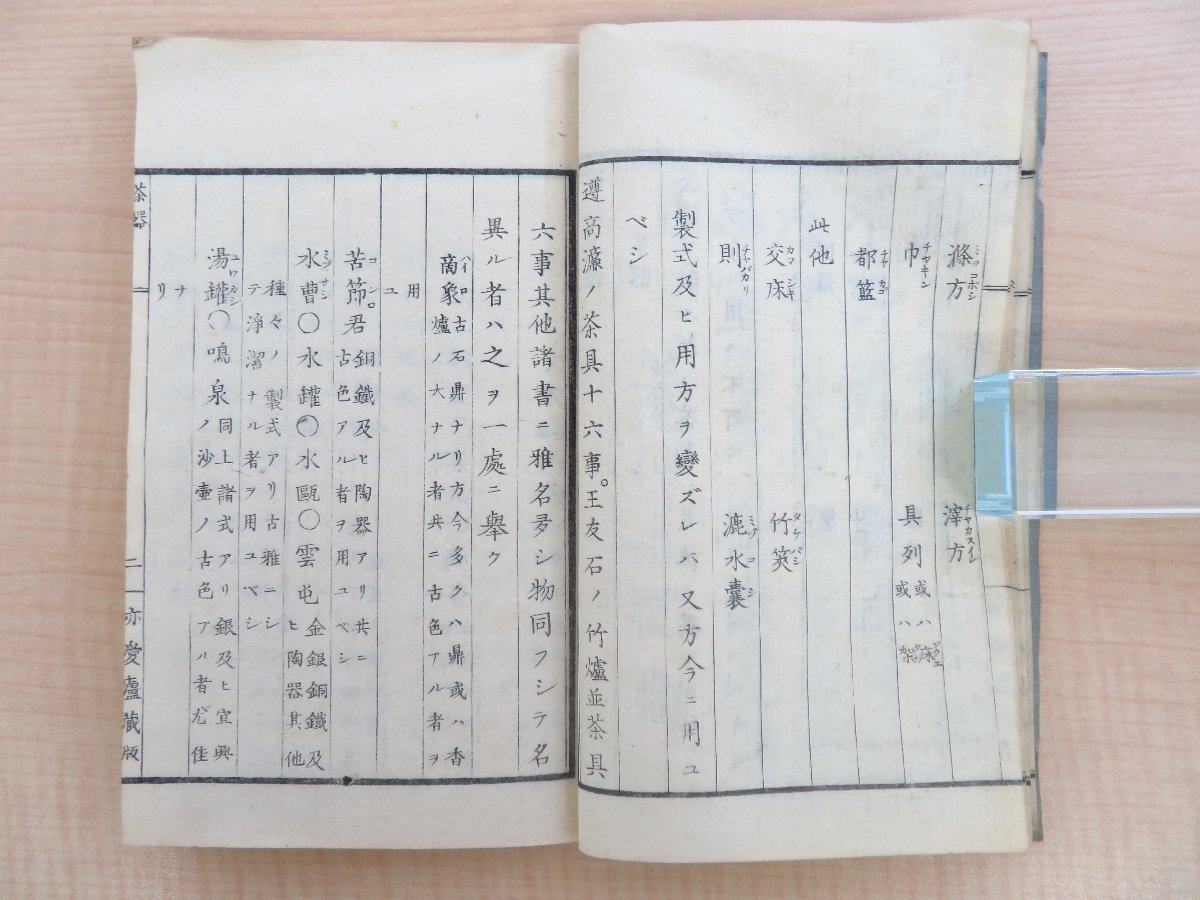 滌方 滓方
巾 具列 或ハ床 或ハ架
都籃
此他
交床 竹筴
則 漉水囊
製式及ヒ用方ヲ變ズレバ又方今ニ用ユ
ベシ
遵高濂ノ茶具十六事。王友石ノ竹爐並茶具
六事其他諸書ニ雅名多シ物同フシテ名
異ル者ハ之ヲ一處ニ擧ク
商象 古石鼎ナリ方今多クハ鼎或ハ香
爐ノ大ナル者共ニ古色アル者ヲ
用ユ
苦節君 銅鐵及ヒ陶器アリ共ニ
古色アル者ヲ用ユベシ
水曹〇水罐〇水甌〇雲屯 金銀銅鐵及
ヒ陶器其他
種々ノ製式アリ古雅ニシ
テ淨潔ナル者ヲ用ユベシ
湯罐〇鳴泉 同上諸式アリ銀及ヒ宜興
ノ沙壷ノ古色アル者尤佳
ナリ
茶器 二 亦愛廬藏版